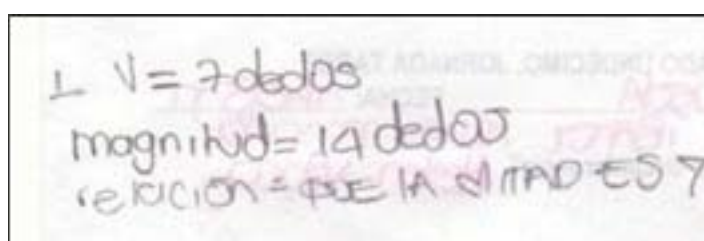 ⊥ V = 7 dedos
magnitud = 14 dedos
relación = QUE LA MITAD ES 7